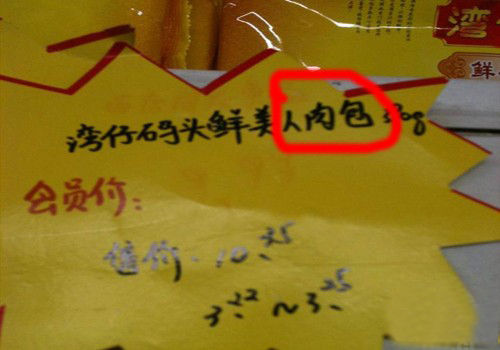 湾
鲜
湾仔码头鲜美人肉包
会员价:
售价. 10.35
3.22~3.25